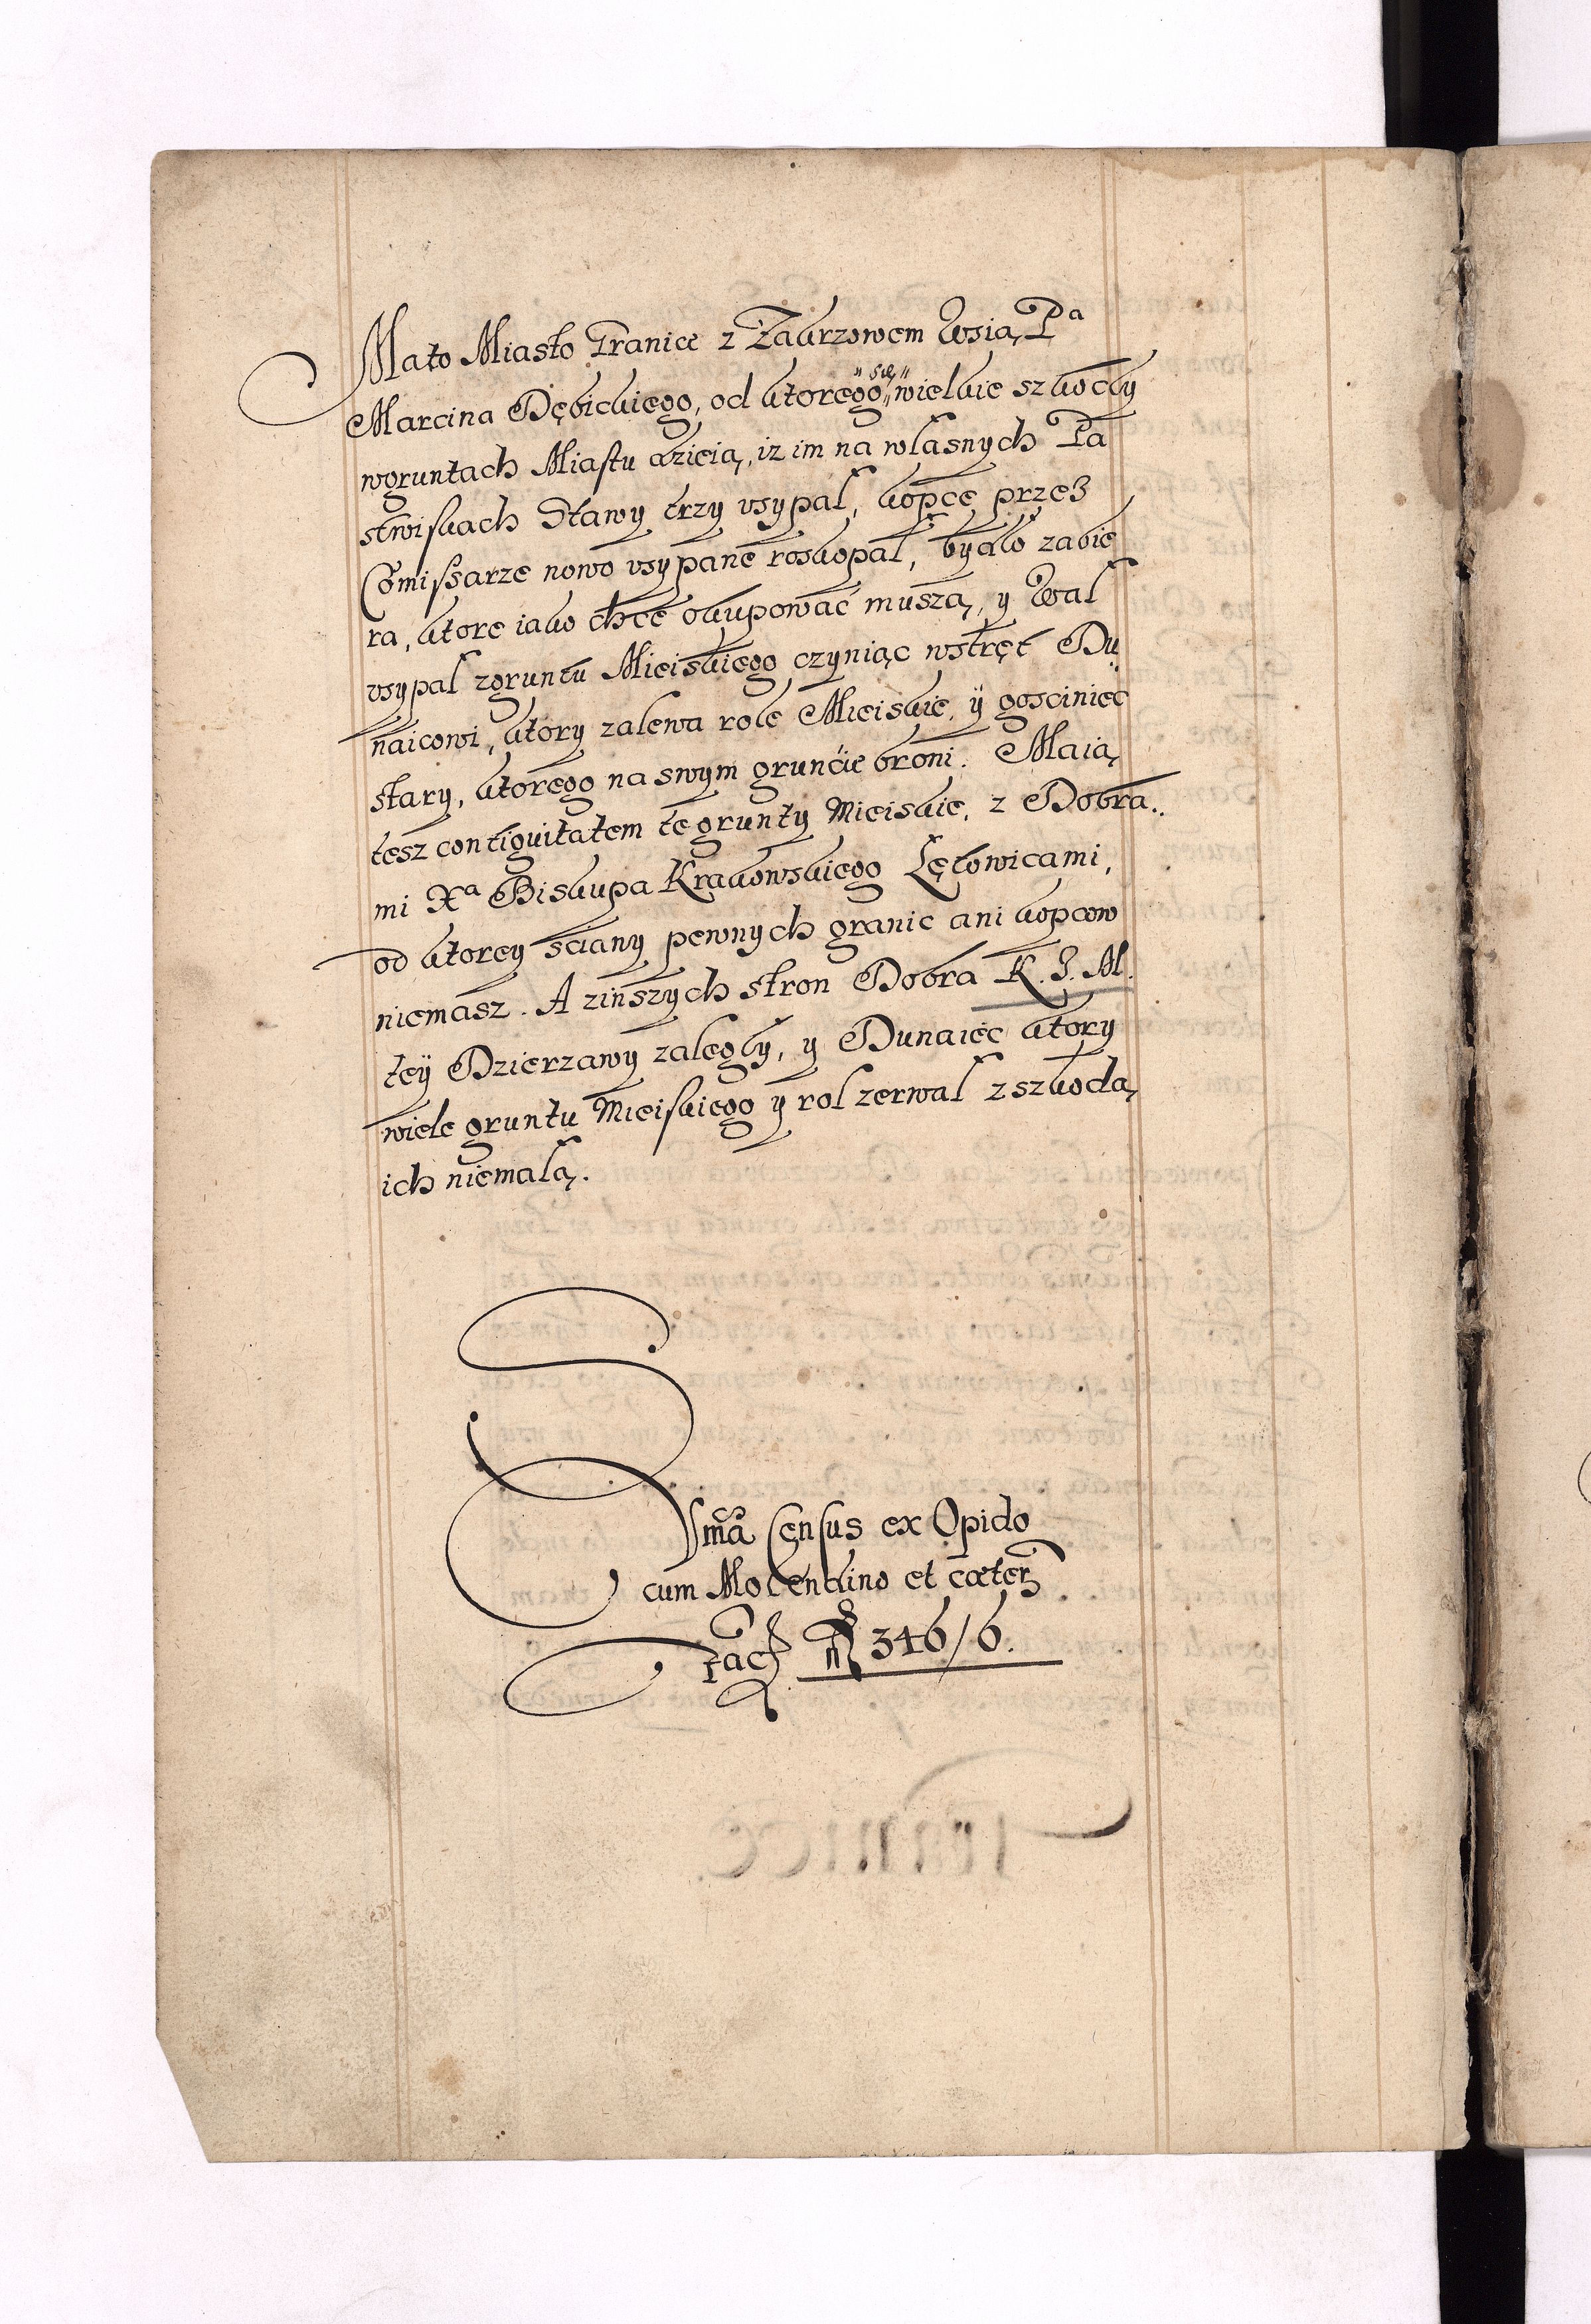 Mato Miasto Granice z Zabrzowem Wsią Pa
Marcina Dębickiego, od ktorego "są" wielkie szkody
wgruntach Miastu dzieią, iz im na wlasnych Pa
stwiskach Stawy trzy vsypal, kopce przez
Comissarze nowo vsypane roskopal, bydlo zabie
ra, ktore iako chce okupować muszą, y Wal
vsypal zgruntu Mieiskiego czyniąc wstręt Du
naicowi, ktory zalewa role Mieiskie, ÿ gosciniec
stary, ktorego na swym gruncie broni. Maią
tesz contiguitatem te grunty Mieiskie, z Dobra..
mi Xa Biskupa Krakowskiego Lętowicami,
od ktorey sciany pewnych granic ani kopcow
niemasz. A zinszych stron Dobra K. J. M.
teÿ Dzierzawy zalegly, y Dunaiec ktory
wiele gruntu Mieiskiego ÿ rol zerwal z szkodą
ich niemalą.
Sma Census ex Opido
cum Molendino et cæter
facit fl 346/6.